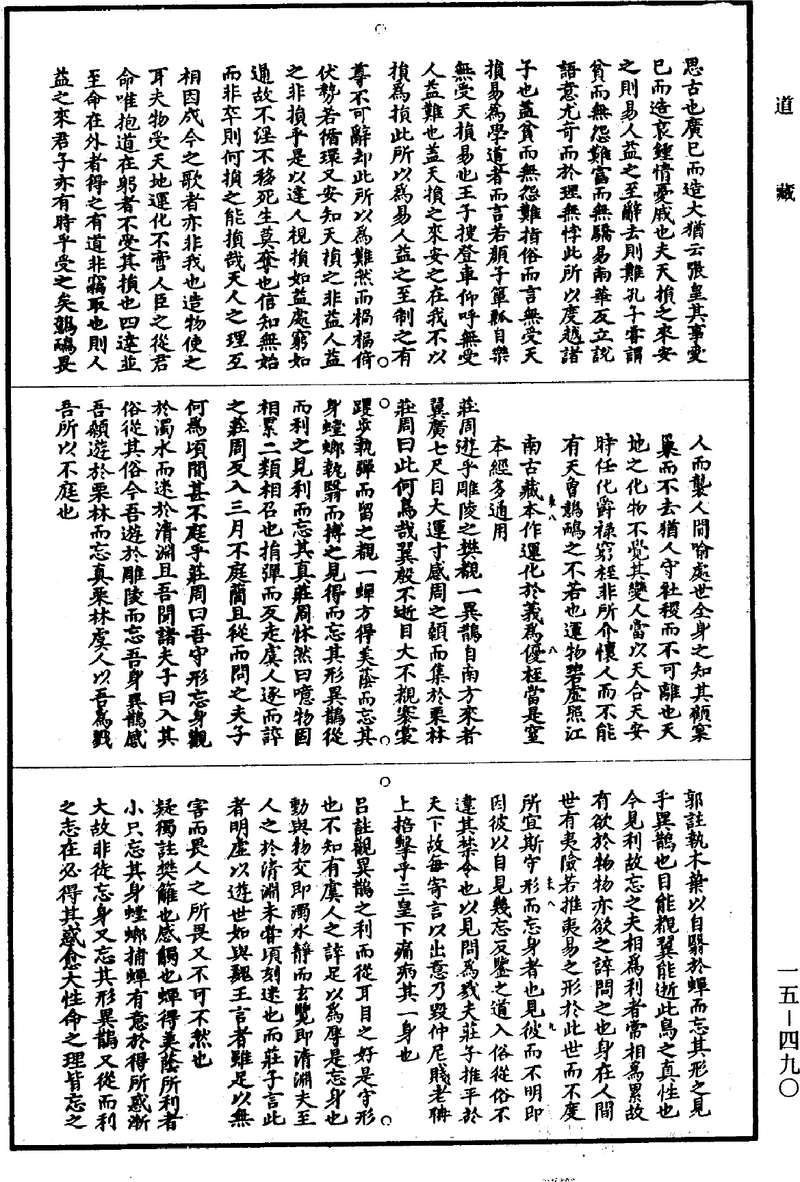 道藏
思古也廣已而造大猶云張皇其事愛
已而造哀鍾情憂戚也夫天損之來安
之則易人益之至辭去則難孔子嘗謂
貧而無怨難富而無驕易南華反立說
語意尤奇而於理無悖此所以度越諸
子也蓋貧而無怨難指俗而言無受天
損易為學道者而言若顏子簞瓢自樂
無受天損易也王子搜登車仰呼無受
人益難也蓋天損之來安之在我不以
損為損此所以為易人益之至制之有
尊不可辭却此所以為難然而禍福倚
伏勢若循環又安知天損之非益人益
之非損乎是以達人視損如益處窮如
通故不淫不移死生莫奪也信知無始
而非卒則何損之能損哉天人之理互
相因成今之歌者亦非我也造物使之
耳夫物受天地運化不啻人臣之從君
命唯抱道在躬者不受其損也四達並
至命在外者得之有道非竊取也則人
益之來君子亦有時乎受之矣鷾鴯畏
人而襲人間喻處世全身之知其顧窠
巢而不去猶人守社稷而不可離也天
地之化物不覺其變人當以天合天安
時任化爵祿窮桎非所介懷人而不能
有天曾鷾鴯之不若也運物碧虛照江
南古藏本作運化於義為優桎當是窒
本經多通用
莊周遊乎雕陵之樊覩一異鵲自南方來者
翼廣七尺目大運寸感周之顙而集於栗林
莊周曰此何鳥哉翼殷不逝目大不覩褰裳
躩步執彈而留之覩一蟬方得美蔭而忘其
身螳蜋執翳而搏之見得而忘其形異鵲從
而利之見利而忘其真莊周怵然曰噫物固
相累二類相召也捐彈而反走虞人逐而誶
之莊周反入三月不庭藺且從而問之夫子
何為頃間甚不庭乎莊周曰吾守形忘身觀
於濁水而迷於清淵且吾聞諸夫子曰入其
俗從其俗今吾遊於雕陵而忘吾身異鵲感
吾顙遊於栗林而忘真栗林虞人以吾為戮
吾所以不庭也
郭註執木葉以自翳於蟬而忘其形之見
乎異鵲也目能覩翼能逝此鳥之真性也
今見利故忘之夫相為利者常相為累故
有欲於物物亦欲之誶問之也身在人間
世有夷險若推夷易之形於此世而不度
所宜斯守形而忘身者也見彼而不明即
因彼以自見幾忘反鑒之道入俗從俗不
違其禁令也以見問為戮夫莊子推平於
天下故每寄言以出意乃毀仲尼賤老聃
上掊擊乎三皇下痛病其一身也
呂註觀異鵲之利而從耳目之好是守形
也不知有虞人之誶足以為辱是忘身也
動與物交即濁水靜而玄覽即清淵夫至
人之於清淵未嘗頃刻迷也而莊子言此
者明虛以遊世如與魏王言者雖足以無
害而畏人之所畏又不可不然也
疑獨註樊籬也感觸也蟬得美蔭所利者
小只忘其身螳蜋捕蟬有意於得所惑漸
大故非徒忘身又忘其形異鵲又從而利
之志在必得其惑愈大性命之理皆忘之
一五－四九〇